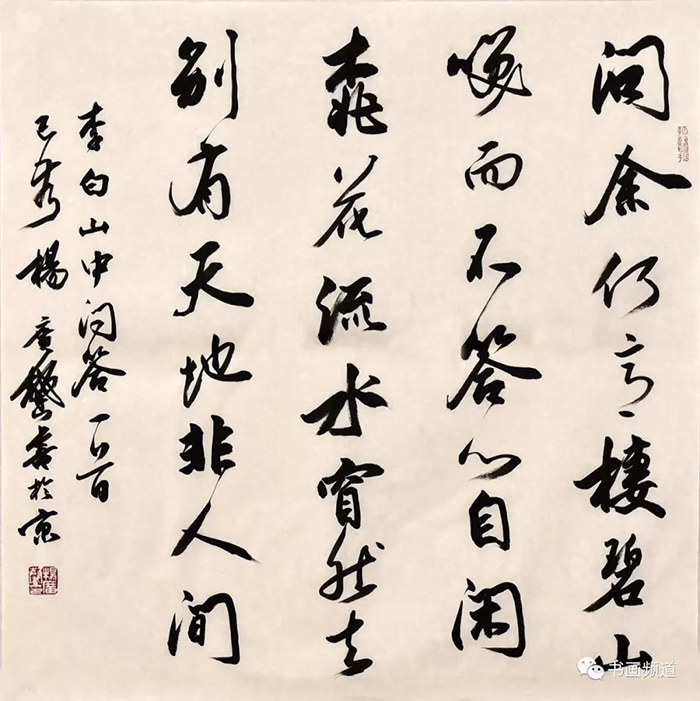 问余何意棲碧山
笑而不答心自闲
桃花流水窅然去
别有天地非人间
李白山中问答一首
己亥 杨广馨书於京
书画频道